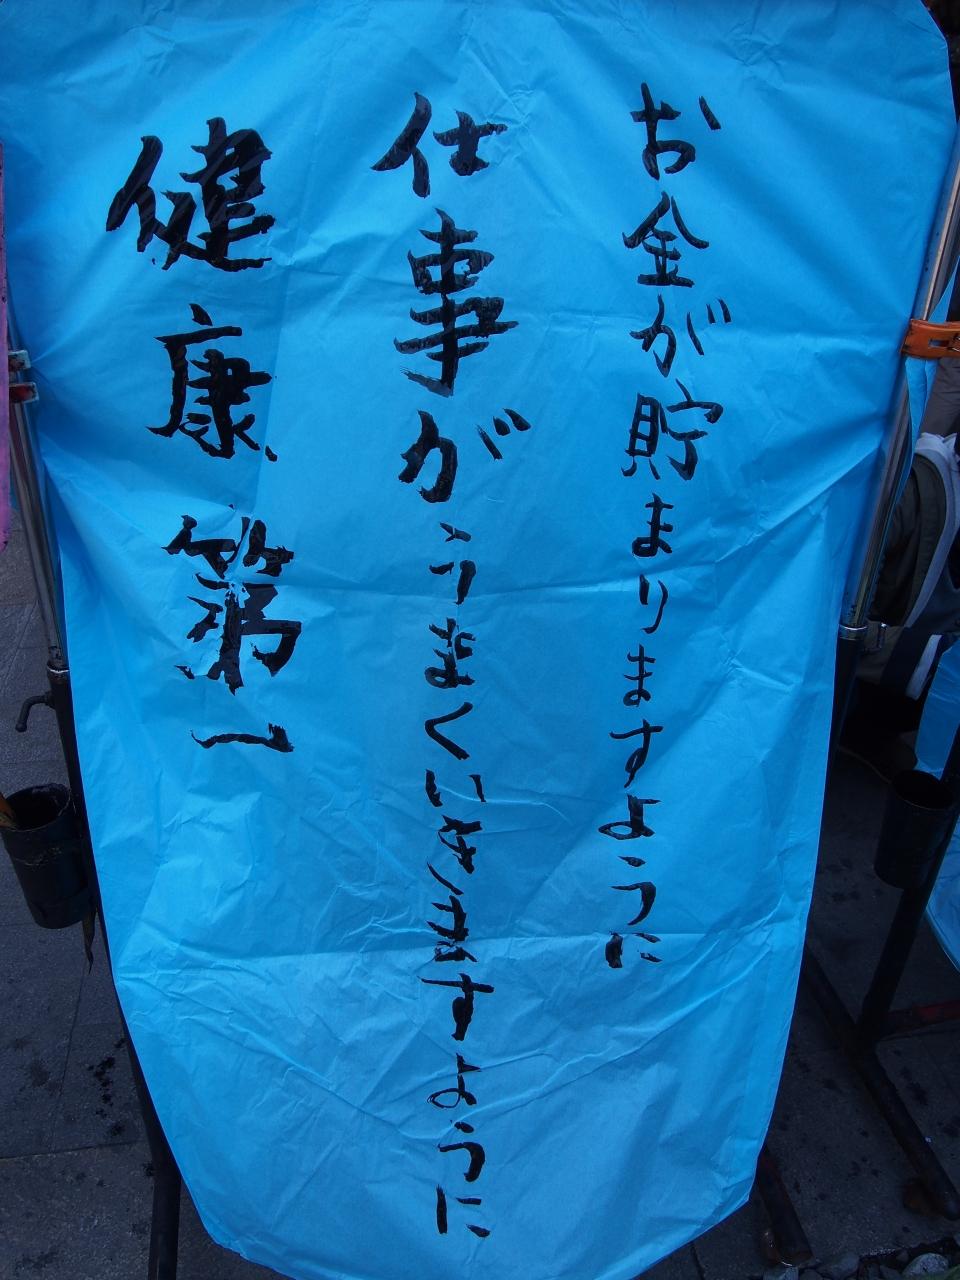 お金が貯まりますように
仕事がうまくいきますように
健康第一